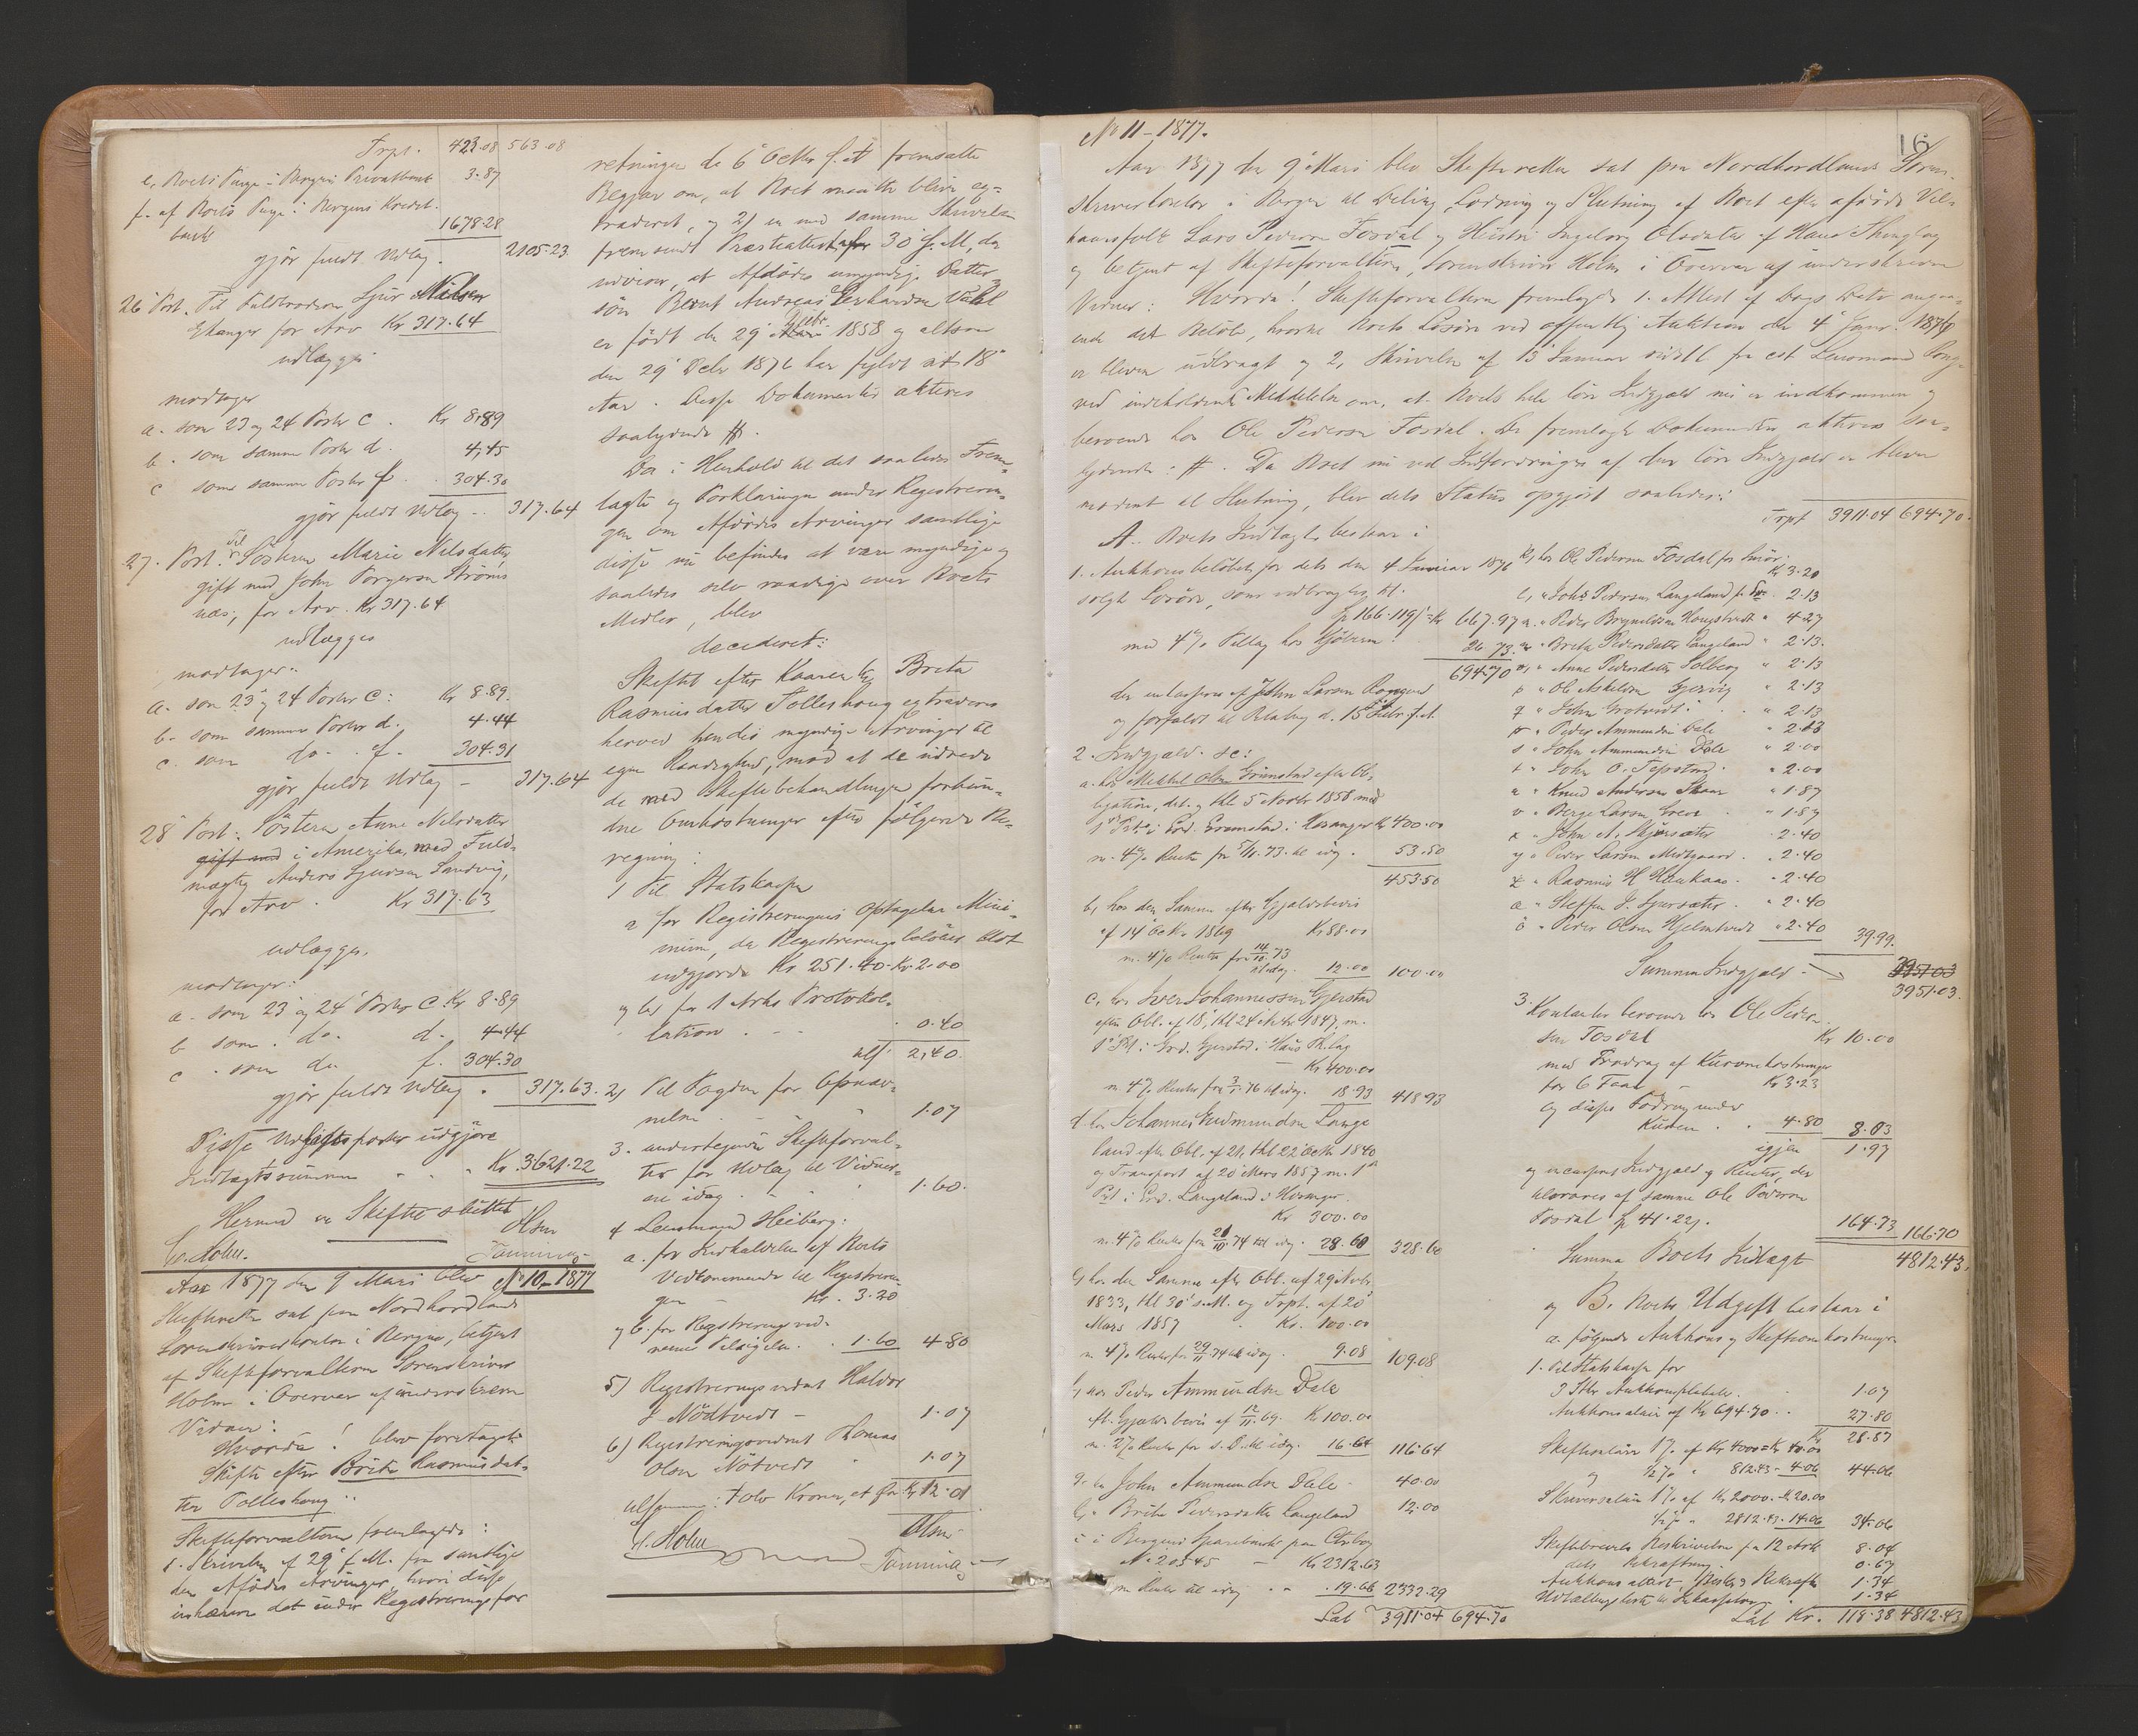 Trpt. 423.08 563.08
e, Boets Penge i Bergens Privatbank 3.87
f. af Boets Penge i Bergens Kredit-
bank 1678.28
gjör fuldt Udlæg. 2105.23
26 Post. Til Fuldbroderen Sjur Nilsen
Ekanger for Arv Kr 317.64
udlægges
modtager
a. som 23 og 24 Poster C. Kr 8.89
b. som samme Poster d. 4.45
c som samme Poster f. 304.30
gjör fuldt Udlæg - 317.64
27. Post. Til Søsteren Marie Nilsdatter,
gift med John Torgersen Ströms
næs, for Arv. Kr 317.64
udlægges
modtager:
a. som 23 og 24 Poster C: Kr 8.89.
b. som samme Poster d. 4.44
c. som do. f. 304.31
gjör fuldt Udlæg - 317.64
28 Post: Söstern Anne Nilsdatter
gift med i Amerika, med Fuld-
mægtig Anders Sjursen Sandvig,
for Arv. Kr 317.63
udlægges.
modtager:
a. som 23 og 24 Poster C. Kr 8.89
b som. do. d. 4.44
c. som do f. 304.30
gjör fuldt Udlæg. 317.63.
Disse Udgiftsposter udgjöre
Indtægtssummen Kr. 3621.22
Hermed er Skiftet sluttet
C. Holm. Olsen
Tonning
No 10-1877
Aar 1877 den 9 Mars blev
Skifteretten sat paa Nordhordlands
Sorenskriverkontor i Bergen, betjent
af Skifteforvalteren Sorenskriver
Holm i Overvær af underskrevne
Vidner:
Hvorda! blev foretaget
Skifte efter Brita Rasmusdat-
ter Tolleshoug:
Skifteforvalteren fremlagde:
1. Skrivelse af 29 f. M. fra samtlige
den Afdödes Arvinger, hvori disse
inhærere det under Registreringsfor
retningen de 6 Octbr f. A fremsatte
Begjær om, at Boet maatte blive ex-
traderet, og 2) en med samme Skrivelse
fremsendt Præsteattest af 30 f. M., der
udviser, at Afdödes umyndige Datter-
sön Bernt Andreas Gerhardsen Vahl
er födt den 29 Decbr 1858 og altsaa
den 29 Decbr 1876 har fyldt sit 18
Aar. Disse Dokumenter akteres
saalydende #.
Da i Henhold til det saaledes Frem-
lagte og Forklaringen under Registrerin-
gen om Afdödes Arvinger samtlige
disse nu befindes at være myndige og
saaledes selv raadige over Boets
Midler, blev
decideret:
Skiftet efter Kaarenke Brita
Rasmusdatter Tolleshoug extraderes
herved hendes myndige Arvinger til
egen Raadighed, mod at de udrede
de med Skiftebehandlingen forbun-
dne Omkostninger efter fölgende Be-
regning:
1 Til Statskassen
a for Registreringens Optagelse Mini-
mum, da Registreringsbelöbet blot
udgjorde Kr 251.40 - Kr. 2.00
og b) for 1 Arks Protokol-
lation 0.40
alt: 2.40.
2) Til Fogden for Opnæv-
nelse 1.07
3. undertegnede Skifteforval-
ter for Udlæg til Vidner-
ne idag. 1.60.
4 Lensmand Heiberg:
a. for Indkaldelse af Boets
Vedkommende til Registrerin-
gen Kr. 3.20
og b. for Registreringsvid-
nernes Tilsigelse 1.60 4.80
5) Registreringsvidnet Haldor
J. Nödtvedt - 1.07
6) Registreringsvidnet Thomas
Olsen Nötvedt 1.07
tilsammen: tolv Kroner, et Öre Kr 12.01
C. Holm Olsen
Tonning
No 11-1877.
16
Aar 1877 den 9 Mars blev Skifteretten sat paa Nordhordlands Soren-
skriverkontor i Bergen til Deling, Lodning og Slutning af Boet efter afdöde Vel-
kaarsfolk Lars Pedersen Fosdal og Hustru Ingeborg Olsdatter af Haus Thinglag
og betjent af Skifteforvalteren, Sorenskriver Holm i Overvær af underskrevne
Vidner: Hvorda! Skifteforvalteren fremlagde 1. Attest af Dags Dato angaa-
ende det Belöb, hvorfor Boets Lösöre ved offentlig Auktion den 4 Janr. 1876
er bleven udbragt og 2, Skrivelse af 15 Januar sidstl fra cst Lensmand Cong-
ved indeholdende Meddelelse om, at Boets hele löse Indgjæld nu er indkommen og
beroende hos Ole Pedersen Fosdal. De fremlagte Dokumenter akteres saa-
lydende: #. Da Boet nu ved Indfordringen af den löse Indgjæld er bleven
modent til Slutning, blev dets Status opgjort saaledes:
A. Boets Indtægter bestaar i
1. Auktionsbelöbet for dets den 4 Januar 1876
solgte Lösöre, som udbragtes til
Sp 166.119 s = Kr 667.97
med 4% Tillæg hos Kjöberne 26.73
694.70
der indkasseres af John Larsen Rongved
og forfaldt til Betaling d. 15 Febr. f. A.
2. Indgjæld. sc:
a. hos Mikkel Olsen Grimstad efter Ob-
ligation, dat. og thl 5 Novbr 1858 med
1 Prt i Grd. Grimstad i Hosanger Kr 400.00
m. 4% Rente fra 5/11.73. til idag. 53.50
453.50
b, hos den Samme efter Gjældsbevis
af 14 Octbr 1869 Kr 88.00
m. 4% Rente fra 14/10.73
til idag. 12.00 100.00
c, hos Iver Johannessen Gjerstad
efter Obl. af 18, thl 24 Octbr 1847, m.
1 Prt. i Grd. Gjerstad i Haus Th.lag
Kr 400.00
m. 4% Renter fra 3/1.76 til idag. 18.93 418.93
d. hos Johannes Gudmundsen Lange
land efter Obl. af 21, thl 22 Octbr 1840
og Transport af 20 Mars 1857 m. 1
Prt. i Grd. Langeland i Hosanger.
Kr 300.00
m. 4% Renter fra 21/10.74 til idag. 28.60 328.60
e, hos den Samme efter Obl. af 29 Novbr.
1833, thl 30 s. M. og Trpt. af 20
Mars 1857 Kr. 100.00
m. 4% Renter fra 29/11.74 til idag. 9.08 109.08
f, hos Peder Ammundsen Dale
eft. Gjældsbevis af 12/11.69. Kr 100.00
m. 2% Renter fra s. D. til idag. 16.64 116.64
g. hos John Ammundsen Dale. 40.00
h. " Brita Pedersdatter Langeland 12.00
i i Bergens Sparebank paa Ctrabog
No 20545 Kr 2312.63
m Renter til idag 19.66 2332.29
Lat 3911.04 694.70
Trpt 3911.04 694.70.
k, hos Ole Pedersen Fosdal for Smör. Kr 3.20
l, " Johs Pedersen Langeland f. Do. 2.13
" Peder Brynildsen Hougstvedt " 4.27
" Brita Pedersdatter Langeland " 2.13.
" Anne Pedersdatter Solberg " 2.13
p " Ole Askildsen Gjervig " 2.13
q " John Grotvedt " 2.13
r " Peder Ammundsen Dale " 2.13
s " John Ammundsen Dale " 2.00
t " John O. Tepstad. " 2.00
u " Knud Andersen Skaar " 1.87
v " Berge Larsen Greve " 1.87
x " John A. Skjersæter 2.40
y " Peder Larsen Midtgaard. " 2.40
z " Rasmus H Haukaas. " 2.40
æ " Steffen J. Sjursæter. " 2.40
ö " Peder Olsen Hjelmtvedt " 2.40 39.99.
Summa Indgjæld - 3951.03
3951.03.
3. Kontanter beroende hos Ole Peder-
sen Fosdal Kr 10.00
med Fradrag af Kuromkostninger
for 6 Faar Kr 3.23
og disses Fodring under
Kuren 4.80 8.03
igjen 1.97
og incasseret Indgjæld og Renter, der
bevares af samme Ole Pedersen
Fosdal Sp 41.22 s. 164.73 166.70
Summa Boets Indtægt 4812.43.
og B. Boets Udgift bestaar i
a. fölgende Auktions og Skifteomkostninger
1. til Statskassen for
3 Stkr Auktionsplakater. 1.07
Auktionssalair af Kr 694.70 27.80
Kr 28.87
Skiftesalair 1% af Kr 4000 = Kr 40.00
og 1/2% " 812.43 - 4.06 44.06
Skriversalair 1% af Kr 2000. Kr 20.00
1/2% " 2812.43. 14.06 34.06
Skiftebrevets Beskrivelse fr 12 Ark 8.04
dets Bekræftning 0.67
Auktionsattest, Beskr & Bekræftn 1.34
Udtællingsliste til Inkassation 1.34
Lat Kr. 118.38 4812.43